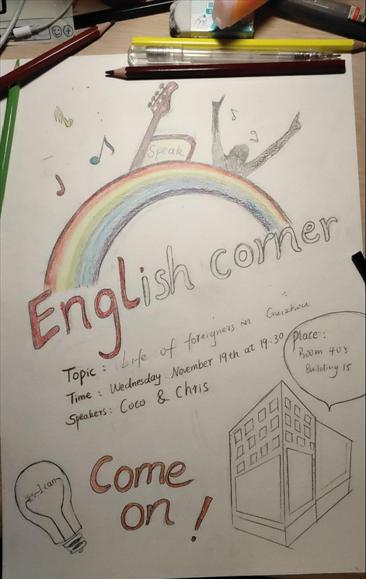 Speak
English corner
Topic: Life of foreigners in Guizhou
Time: Wednesday November 19th at 19:30
Speakers: Coco & Chris
Place:
Room 403
Building 15
Come
on!